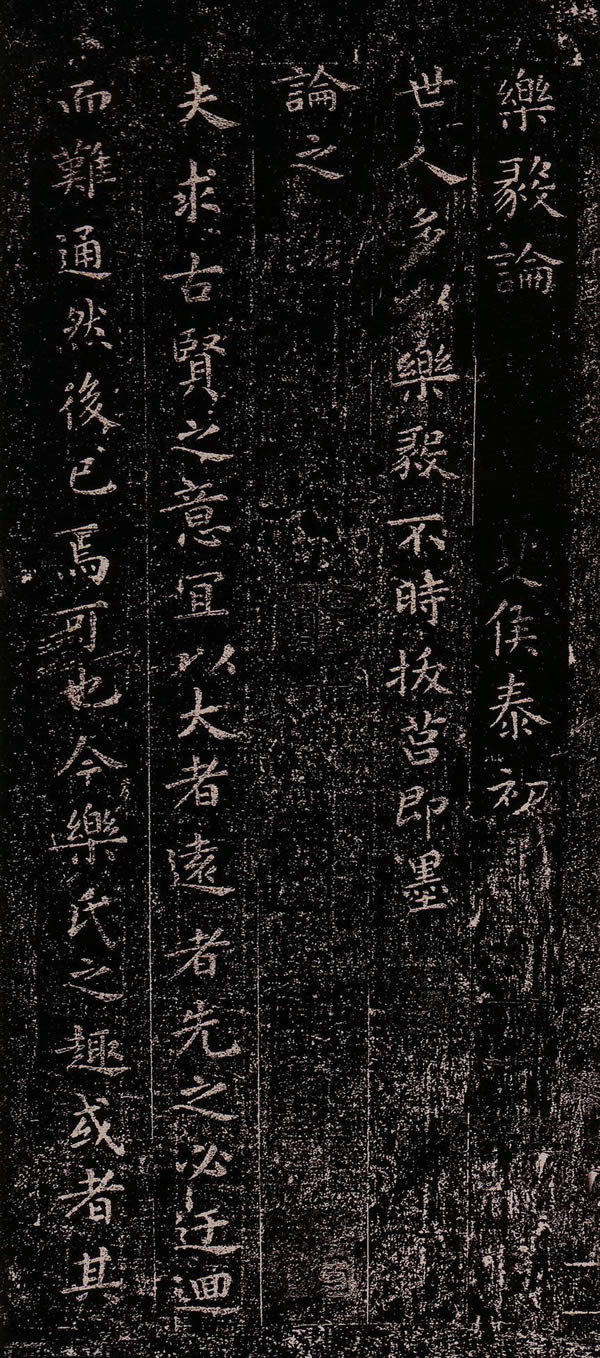 樂毅論 夏侯泰初
世人多以樂毅不時拔莒即墨
論之
夫求古賢之意宜以大者遠者先之必迂迴
而難通然後已焉可也今樂氏之趣或者其